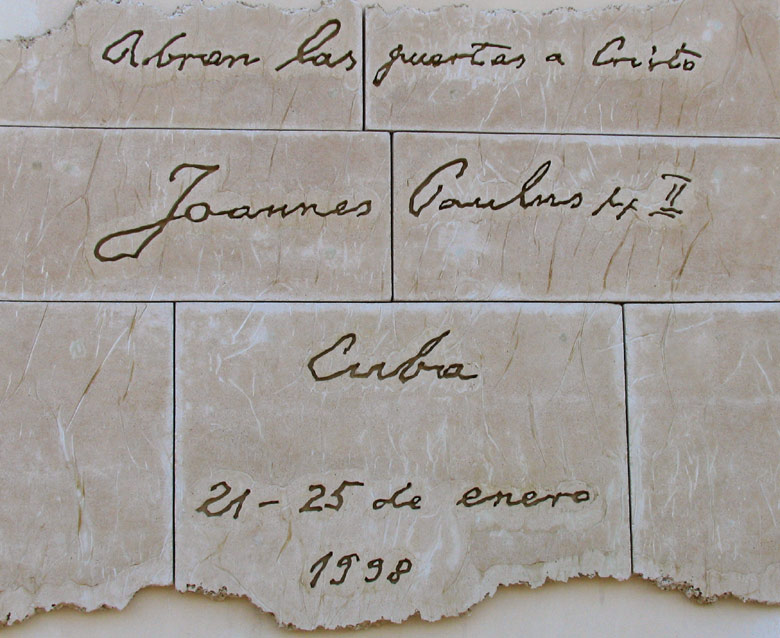 Abran las puertas a Cristo
Joannes Paulus pp II
Cuba
21 - 25 de enero
1998